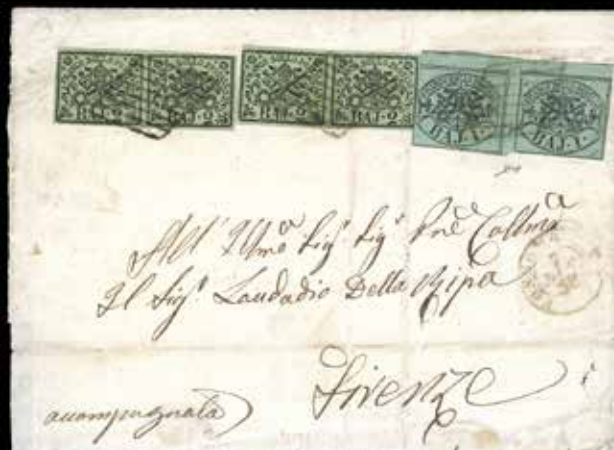 BAJ·2 BAJ·2 BAJ·2 BAJ·2 BAJ·1· BAJ·1·
All' Illmo Sigr Sigr Prne Collmo
Il Sigr Laudadio Della Ripa
Firenze
accompagnata